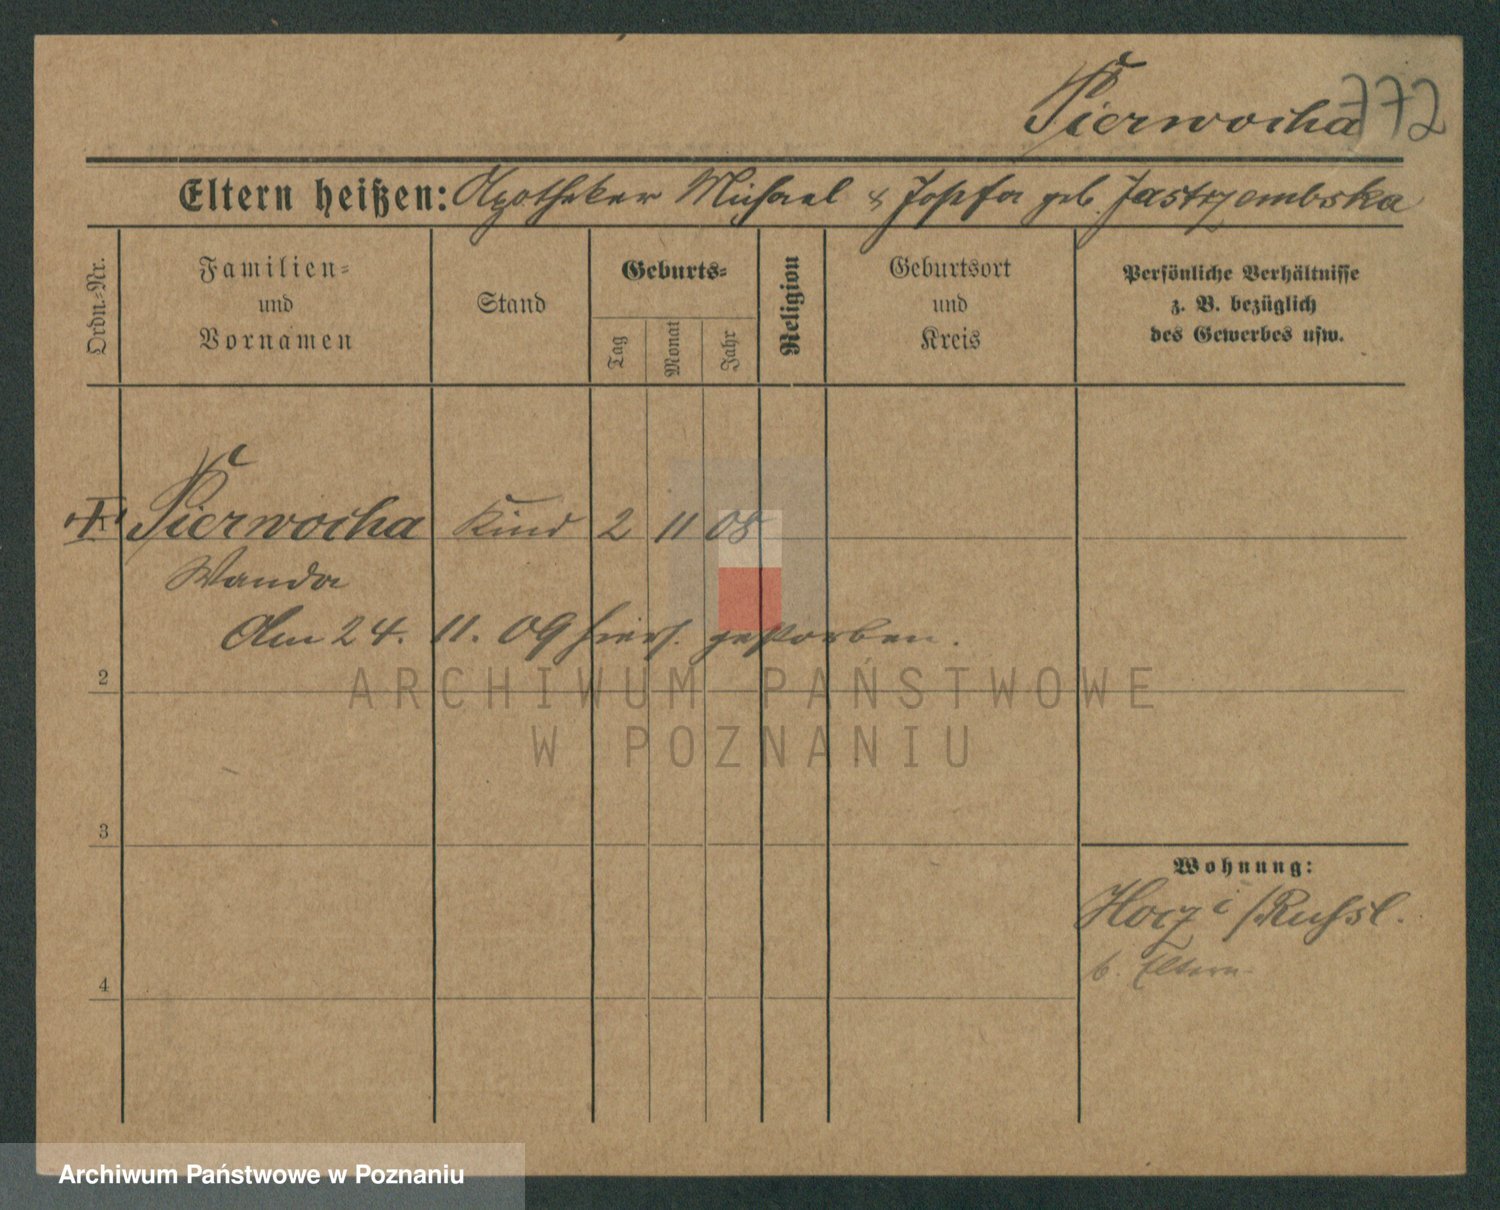 Pierwocha 772
Eltern heißen: Apotheker Michael & Josefa geb. Jastrzembska
Ordn.-Nr.
Familien-
und
Vornamen
Stand
Geburts-
Tag
Monat
Jahr
Religion
Geburtsort
und
Kreis
Persönliche Verhältnisse
z. B. bezüglich
des Gewerbes usw.
1 Pierwocha Kind 2 11 08
Wanda
Am 24. 11. 09 hiers. gestorben.
2
3
4
Wohnung:
i/Russl.
b. Eltern
ARCHIWUM PAŃSTWOWE
W POZNANIU
Archiwum Państwowe w Poznaniu